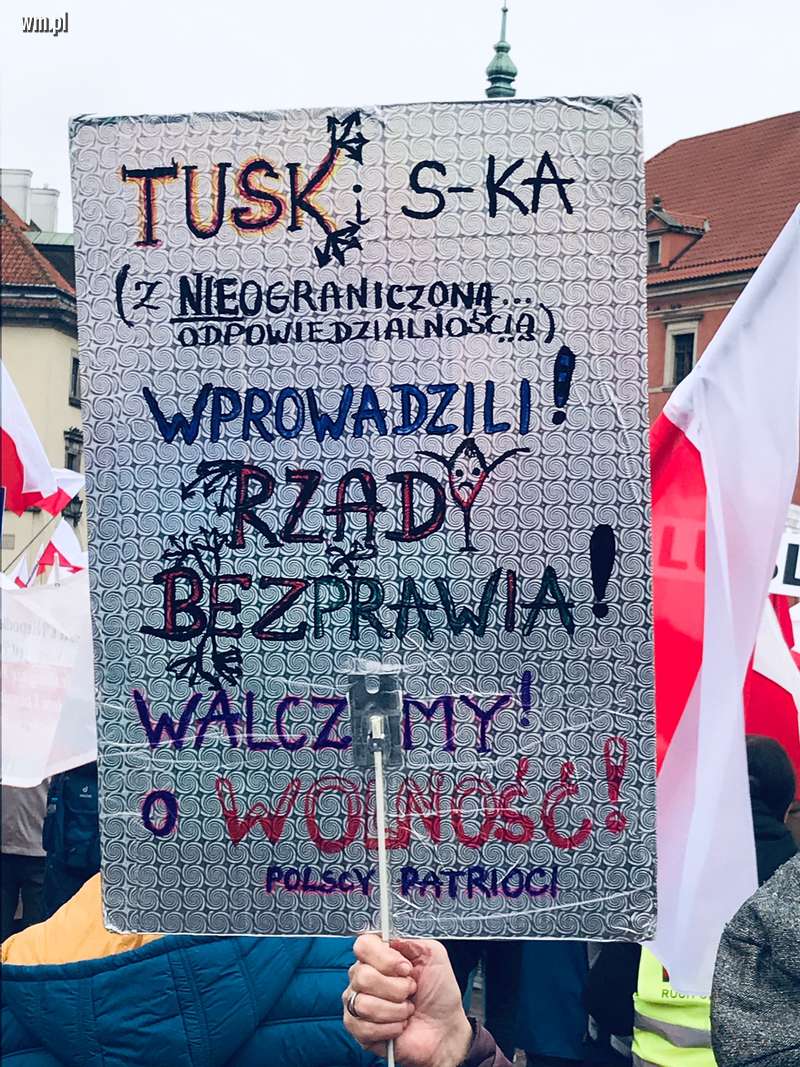 wm.pl
TUSK i S-KA
(Z NIEOGRANICZONĄ...
ODPOWIEDZIALNOŚCIĄ)
WPROWADZILI!
RZĄDY
BEZPRAWIA!
WALCZYMY!
O WOLNOŚĆ!
POLSCY PATRIOCI